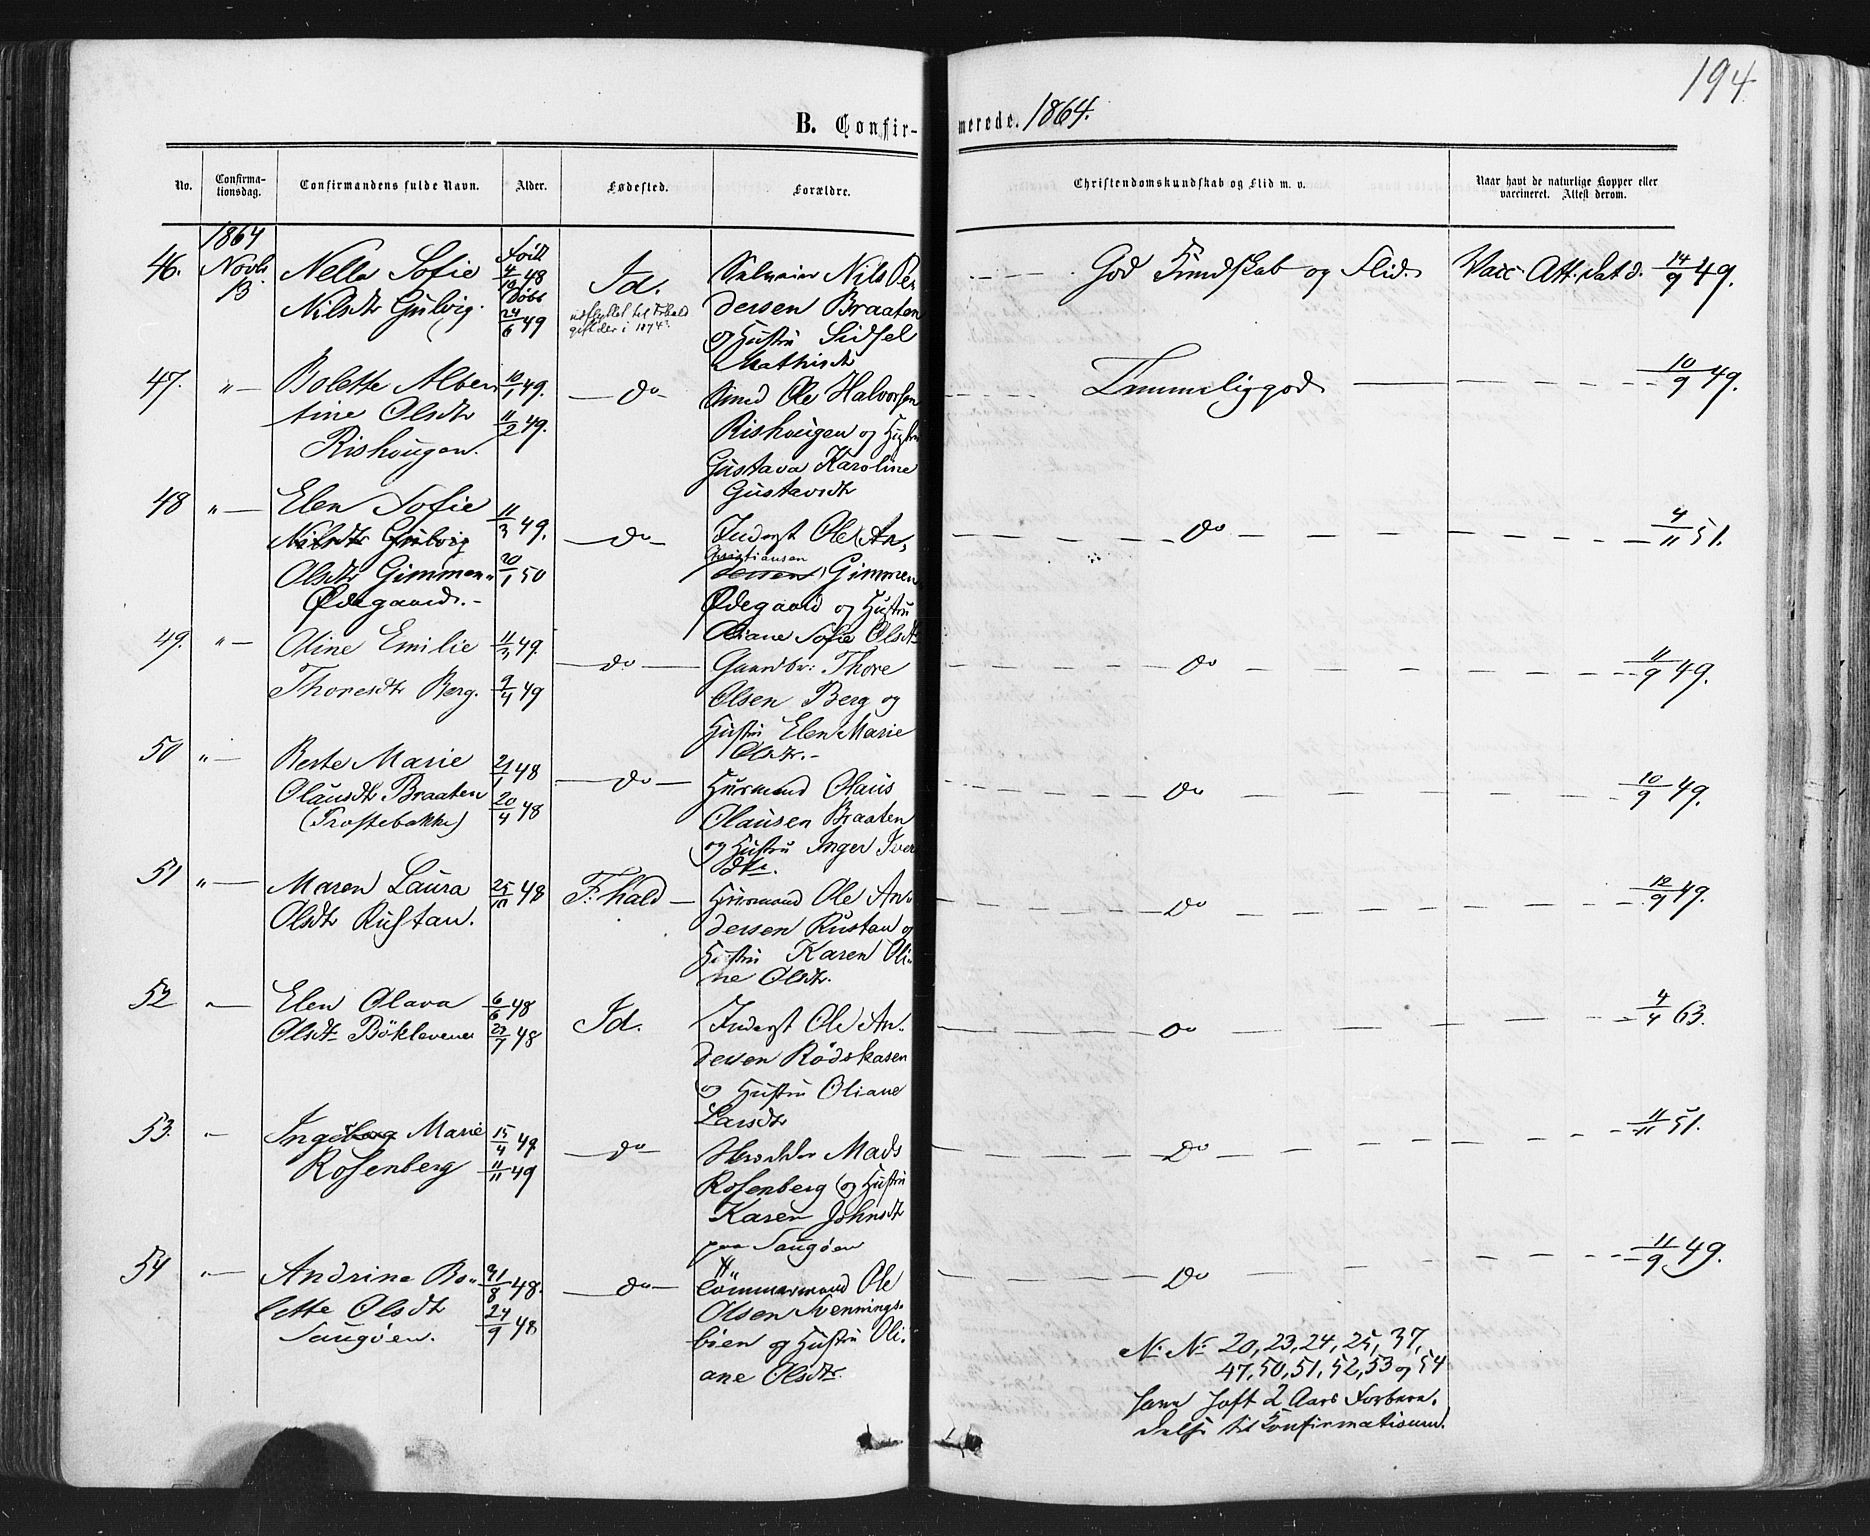 194
B. Confirmerede. 1864.
No. Confirmationsdag. Confirmandens fulde Navn. Alder. Fødested. Forældre. Christendomskundskab og Flid m. v. Naar havt de naturlige Kopper eller vaccineret. Attest derom.
1864
46. Novb. 13
Nella Sofie
Nilsdtr Gulvig.
Født 4/12 48
Døbt 24/6 49
Id.
udflyttet til Frhald
gift der i 1874
Nils Pedersen Braaten
og Hustru Sidsel
Mathisdtr
God Kundskab og Flid. Vacc. Att. dat d. 14/9 49.
47. " —
Bolette Albertine Olsdtr
Rishougen.
10/1 49.
11/2 49.
— do —
Smed Ole Halvorsen
Rishougen og Hustru
Gustava Karoline
Gustavsdtr
Temmelig god 10/9 49.
48 " —
Elen Sofie
Nilsdtr Gulvig
Olsdtr Gimmen
Ødegaard. -
11/3 49.
20/1 50
— do —
Inderst Ole An-
Christiansen
dersen Gimmen
Ødegaard og Hustru
Oliane Sofie Olsdtr
do 4/11 51.
49. " —
Oline Emilie
Thoresdtr Berg.
11/3 49.
9/4 49
— do —
Gaardbr: Thore
Olsen Berg og
Hustru Elen Marie
Olsdtr. -
do 11/9 49.
50 " —
Berte Marie
Olausdtr Braaten
(Trostebakke)
21/1 48
20/4 48
— do —
Husmand Olaus
Olausen Braaten
og Hustru Inger Iversdtr.
do 10/9 49.
51 " —
Maren Laura
Olsdtr Rustan.
25/11 48
F: hald —
Husmand Ole An-
dersen Rustan og
Hustru Karen Oli-
ne Olsdtr.
do 12/9 49.
52 " —
Elen Olava
Olsdtr Böklevene
6/6 48
23/7 48
Id.
Inderst Ole An-
dersen Rödskasen
og Hustru Oliane
Larsdtr
do 4/4 63.
53. " —
Ingeborg Marie
Rosenberg
15/4 49.
11/11 49
— do —
Mads
Rosenberg og Hustru
Karen Johnsdtr
paa Saugöen
do 11/11 51.
54 " —
Andrine Bo-
lette Olsdtr
Saugöen.
31/8 48.
24/9 48
— do —
Tömmermand Ole
Olsen Svennings-
böen og Hustru Oli-
ane Olsdtr.
do 11/9 49.
No No 20, 23, 24, 25, 37,
47, 50, 51, 52, 53 og 54
have havt 2 Aars Forbere-
delse til Konfirmationen.